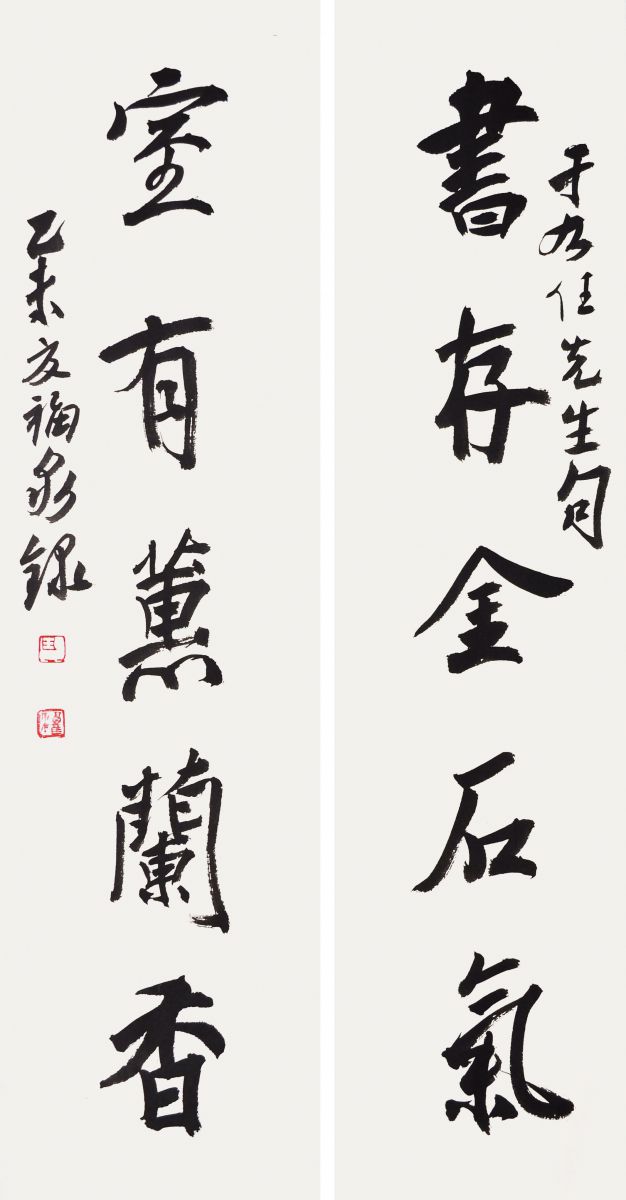 于右任先生句
書存金石氣
室有蕙蘭香
乙未友福泉錄